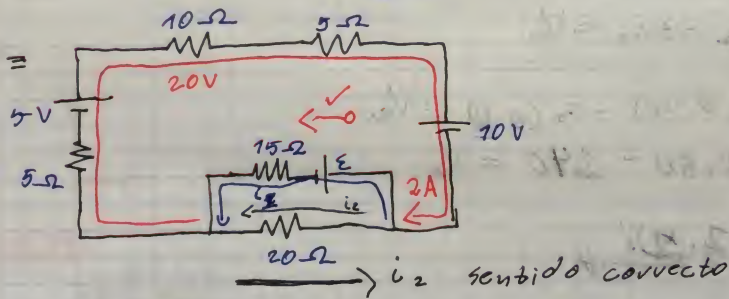 10Ω 5Ω
=
20V
5V
10V
5Ω
15Ω ε
2A
i₂
20Ω
i₂ sentido correcto